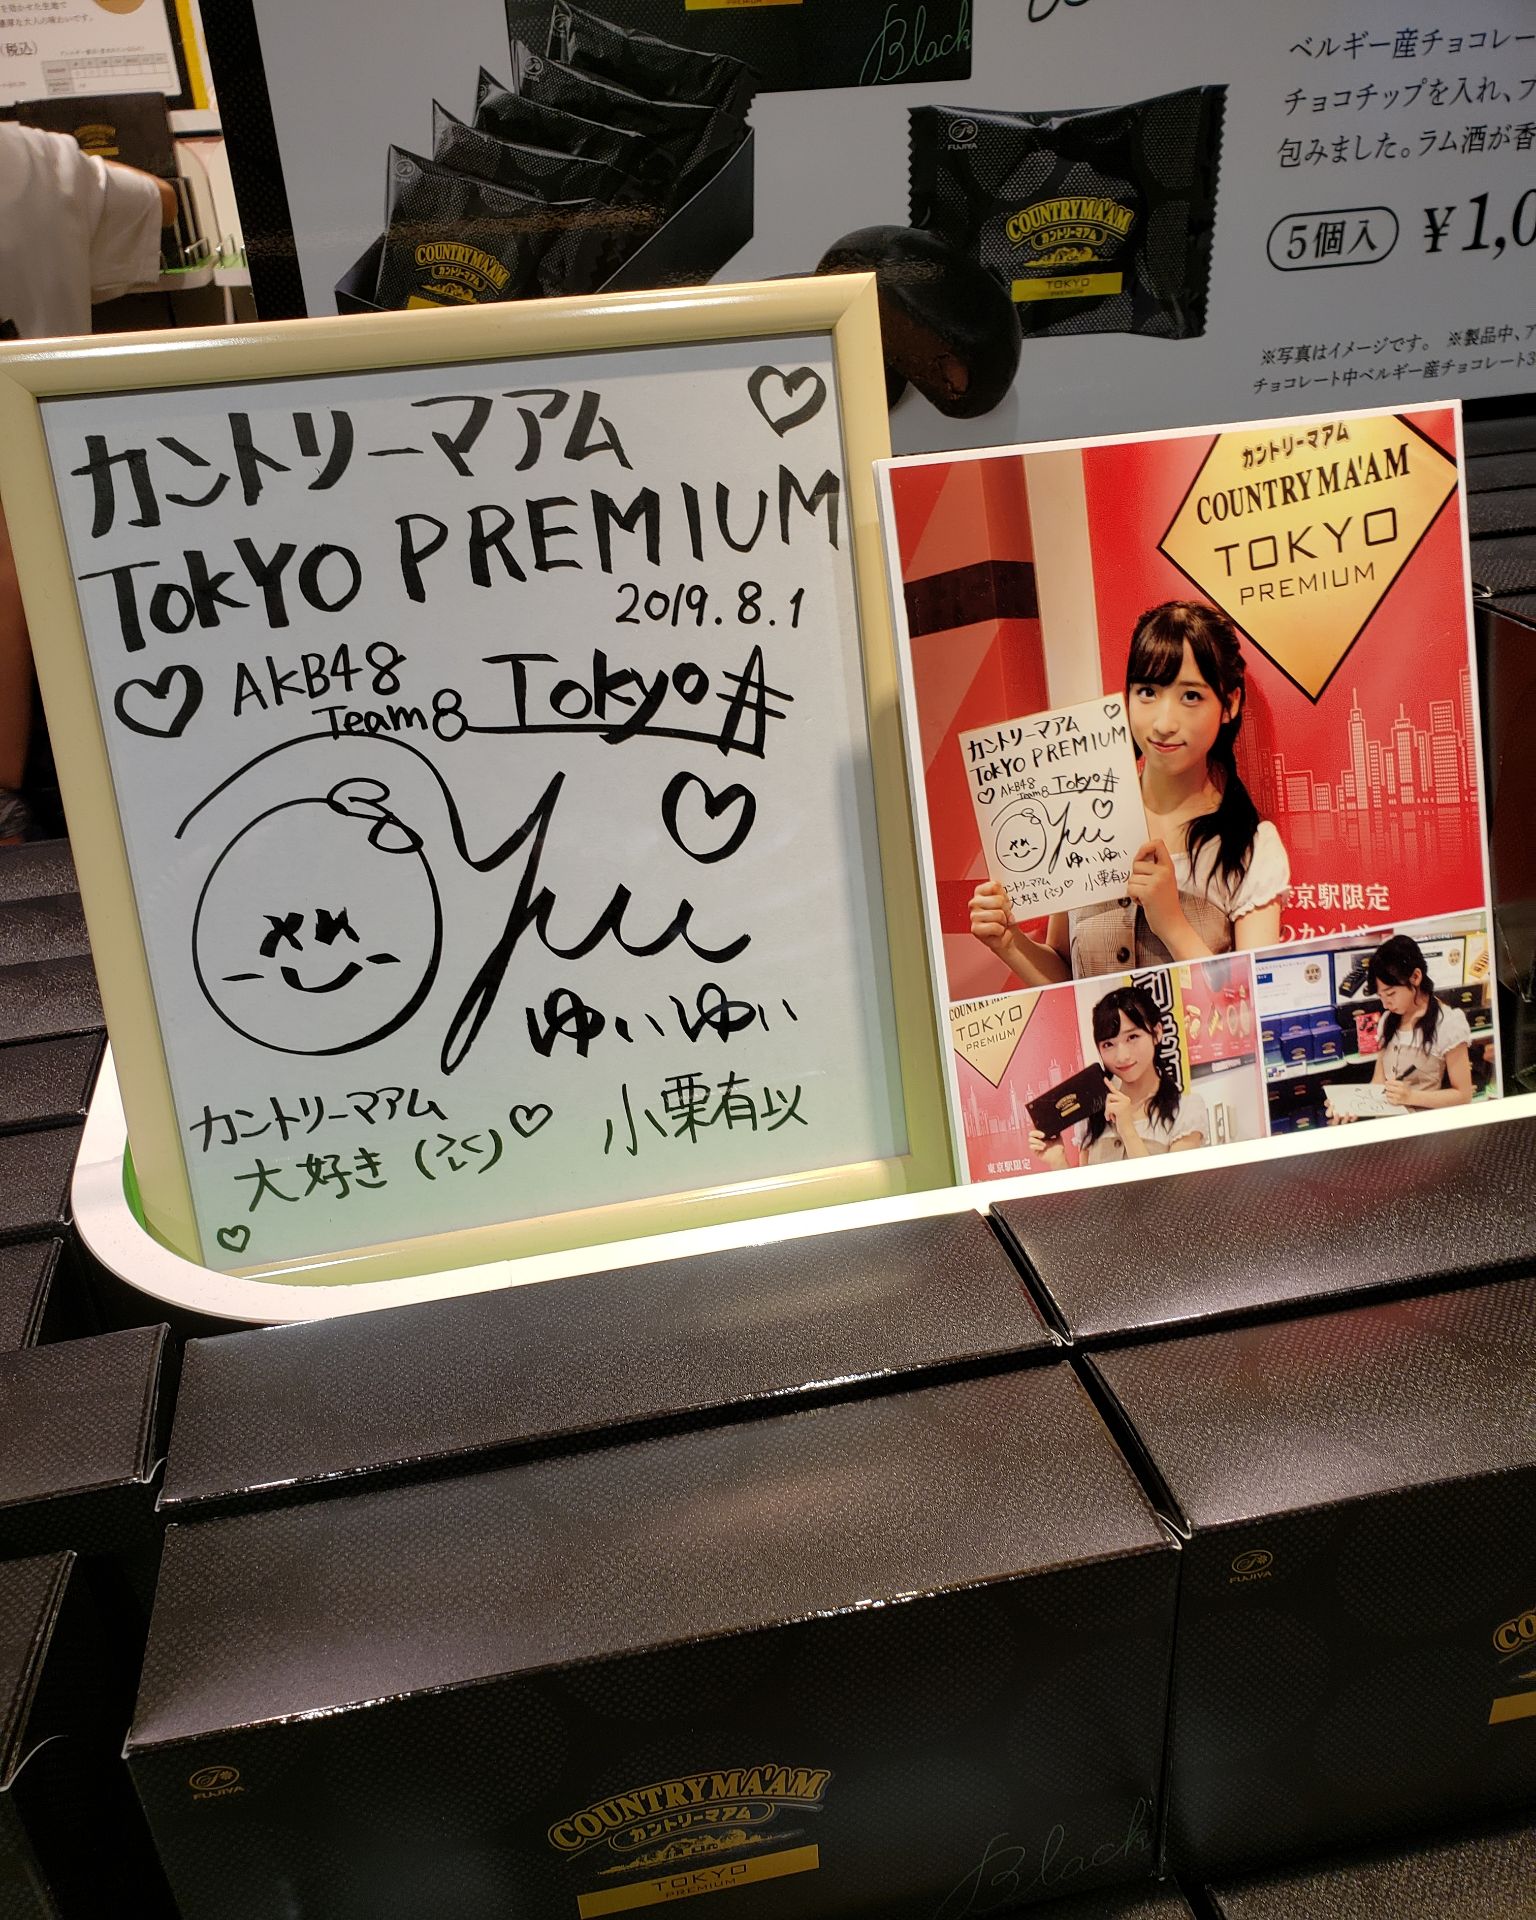 を効かせた生地で
濃厚な大人の味わいです。
(税込)
Black
FUJIYA
COUNTRY MA'AM
カントリーマアム
COUNTRY MA'AM
カントリーマアム
TOKYO
PREMIUM
ベルギー産チョコレー
チョコチップを入れ、フ
包みました。ラム酒が香
5個入 ¥1,0
※写真はイメージです。 ※製品中、ア
チョコレート中ベルギー産チョコレート3
カントリーマアム
TOKYO PREMIUM
2019.8.1
AKB48
Team8 Tokyo
Yuu
ゆいゆい
カントリーマアム
大好き
小栗有以
カントリーマアム
COUNTRY MA'AM
TOKYO
PREMIUM
カントリーマアム
TOKYO PREMIUM
AKB48
Team8 Tokyo
Yuu
ゆいゆい
カントリーマアム
大好き
小栗有以
京駅限定
のカントリー
COUNTRY MA'AM
TOKYO
PREMIUM
東京駅限定
FUJIYA
COUNTRY MA'AM
カントリーマアム
TOKYO
PREMIUM
Black
FUJIYA
CO